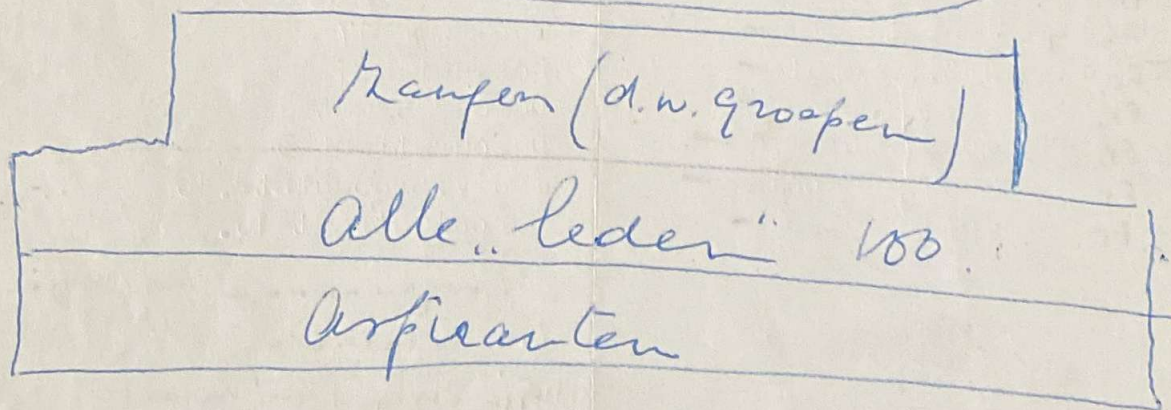 (d.w. groepen)
Alle „leden" 100
Aspiranten